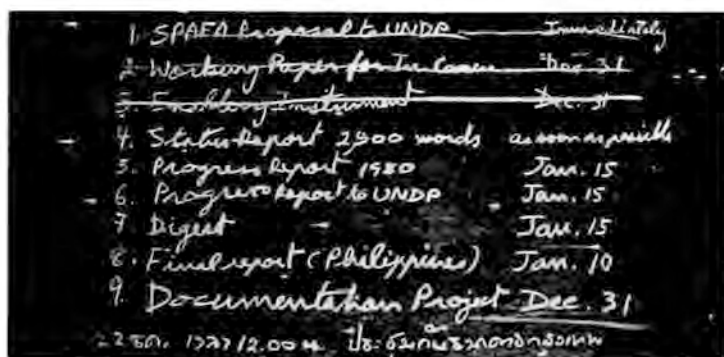 1. SPAFA Proposal to UNDP Immediately
2. Working Paper for Dec 31
3. Enabling Instrument Dec. 31
4. Status Report 2,900 words as soon as possible
5. Progress Report 1980 Jan. 15
6. Progress Report to UNDP Jan. 15
7 Digest Jan. 15
8. Final report (Philippines) Jan. 10
9. Documentation Project Dec. 31
22 ธค. เวลา 12.00 น. ประชุม